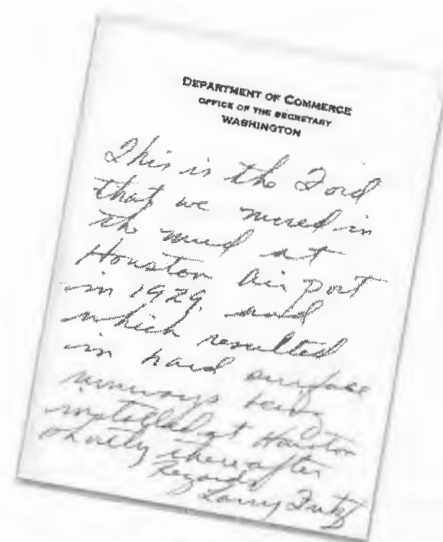 DEPARTMENT OF COMMERCE
OFFICE OF THE SECRETARY
WASHINGTON
This is the Ford
that we mired in
the mud at
Houston Airport
in 1929 and
which resulted
in hard surface
runways being
installed at Houston
shortly thereafter
Regards
Larry Fritz